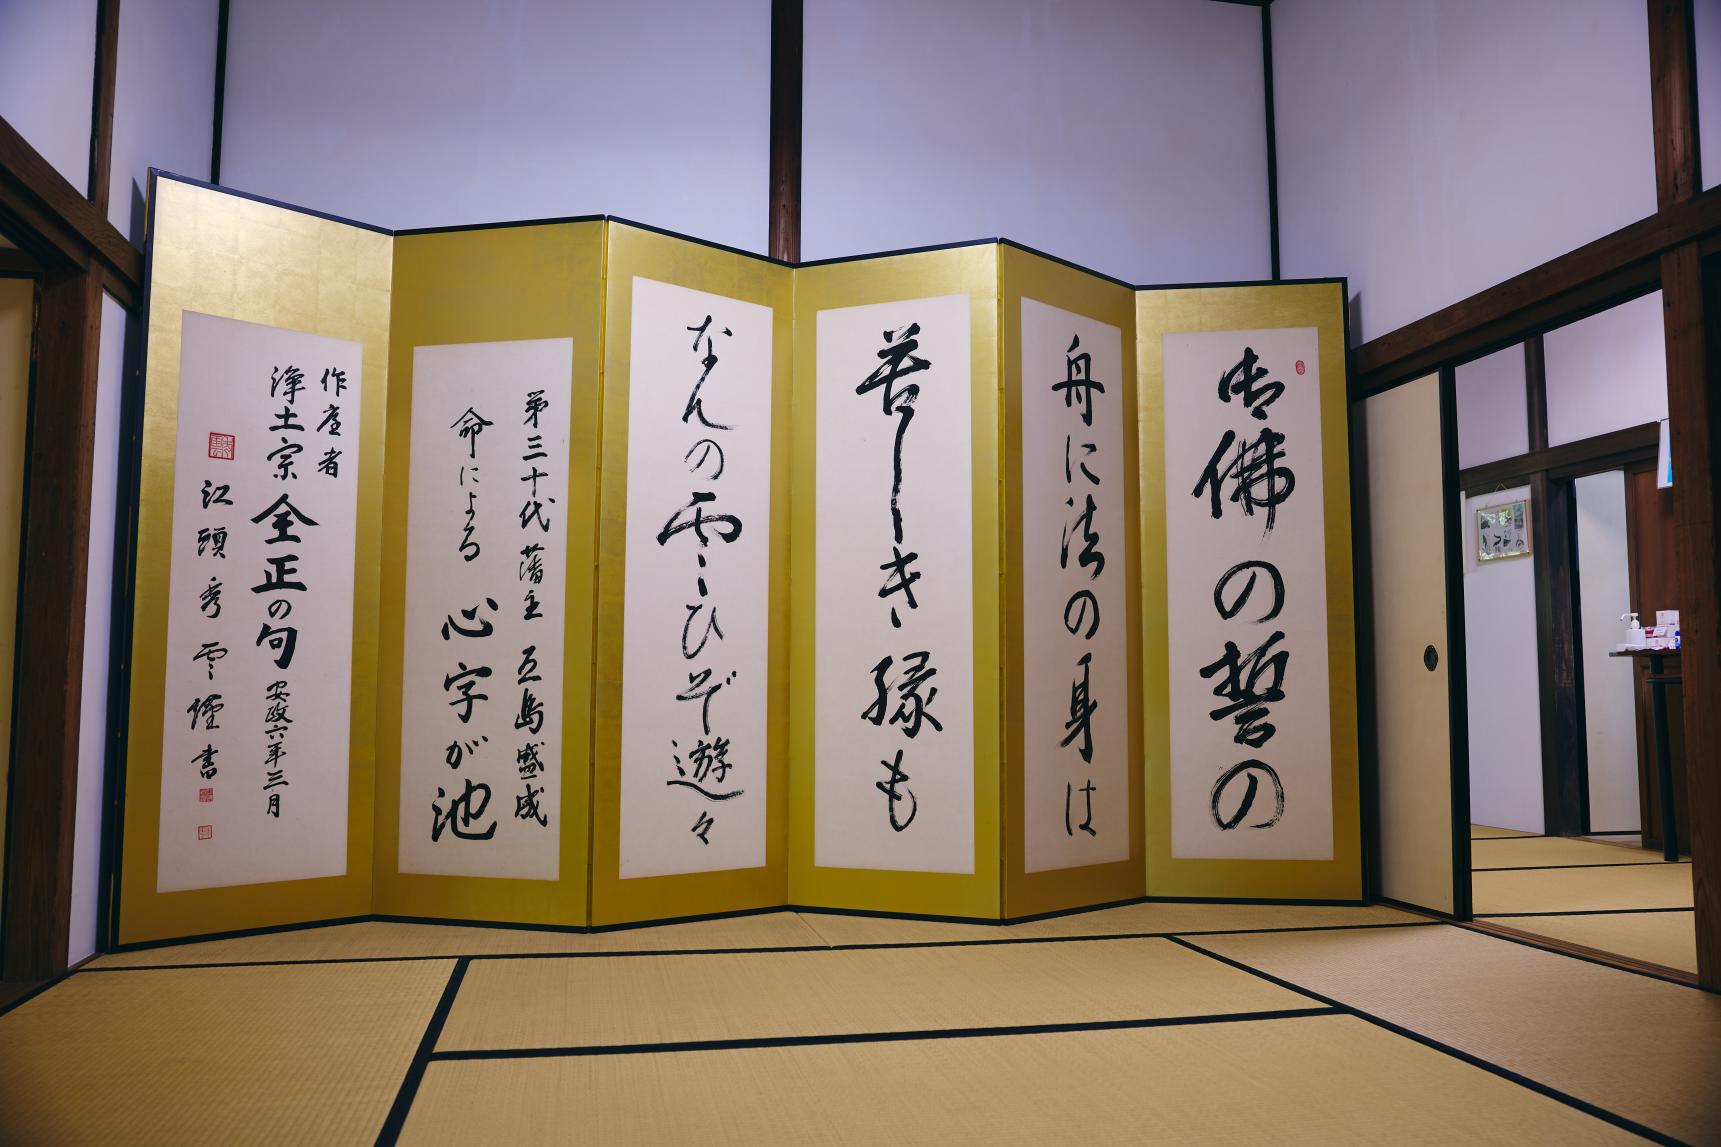 御佛の誓の
舟に法の身は
苦しき縁も
なんの雲ひぞ遊々
第三十代藩主 五島盛成
命による 心字が池
作庭者
浄土宗 全正の句 安政六年三月
江頭秀雲謹書